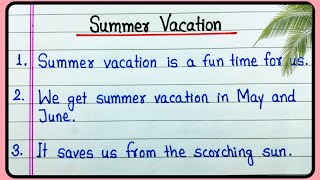 Summer Vacation
1. Summer vacation is a fun time for us.
2. We get summer vacation in May and
June.
3. It saves us from the scorching sun.